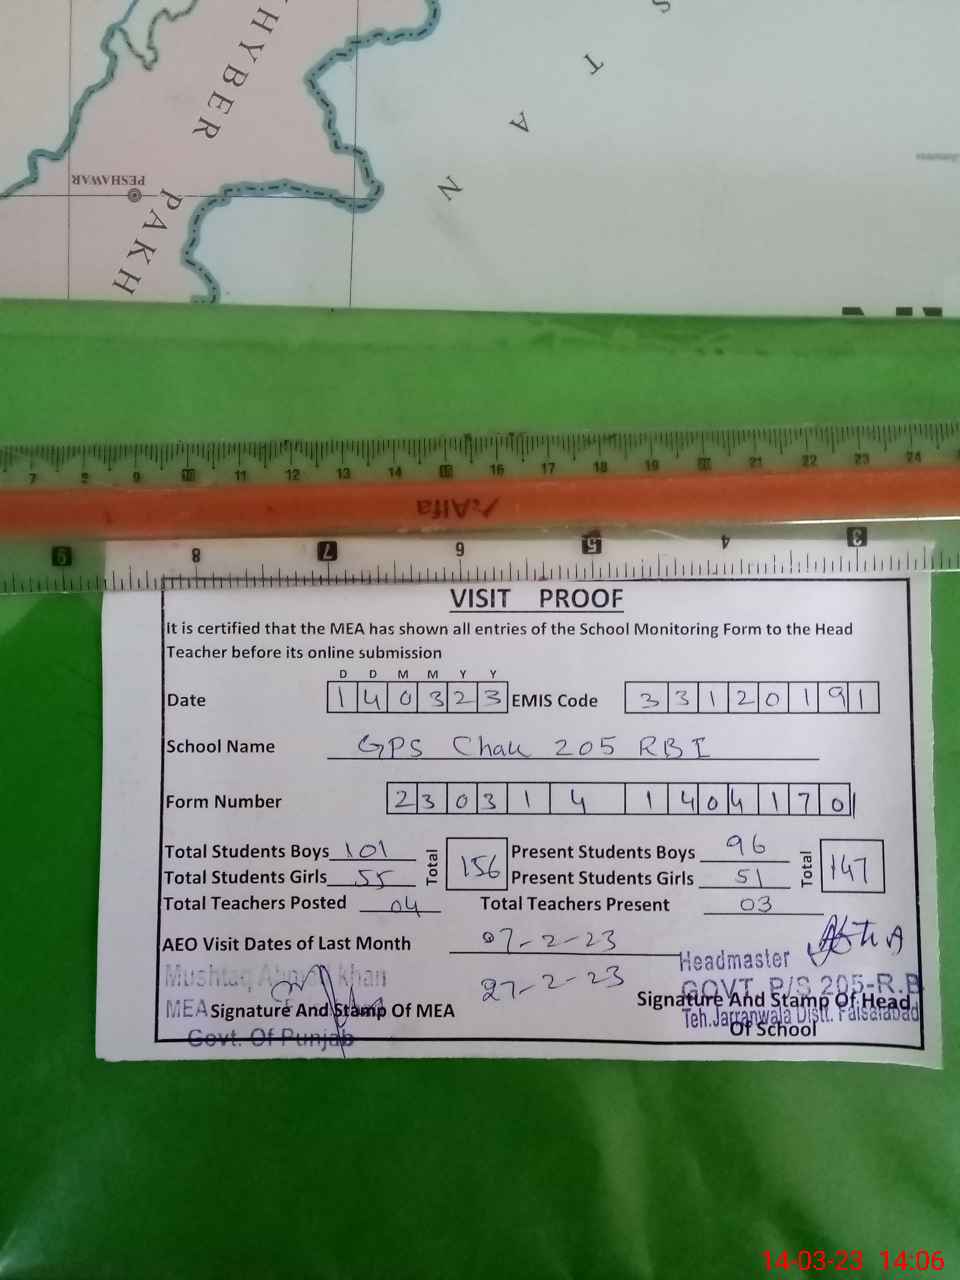 KHYBER
PAKH
PESHAWAR
S
T
A
N
7 8 9 10 11 12 13 14 15 16 17 18 19 20 21 22 23 24
Alfa
9 8 7 6 5 4 3
VISIT PROOF
It is certified that the MEA has shown all entries of the School Monitoring Form to the Head
Teacher before its online submission
D D M M Y Y
Date 1 4 0 3 2 3 EMIS Code 3 3 1 2 0 1 9 1
School Name GPS Chak 205 RB I
Form Number 2 3 0 3 1 4 1 4 0 4 1 7 0
Total Students Boys 101 Total 156 Present Students Boys 96 Total 147
Total Students Girls 55 Present Students Girls 51
Total Teachers Posted 04 Total Teachers Present 03
AEO Visit Dates of Last Month 07-2-23
27-2-23
Mushtaq Ahmad khan
MEA
Govt. Of Punjab
Signature And Stamp Of MEA
Headmaster
GOVT. P/S 205-R.B
Teh.Jarranwala Distt. Faisalabad
Signature And Stamp Of Head
Of School
14-03-23 14:06